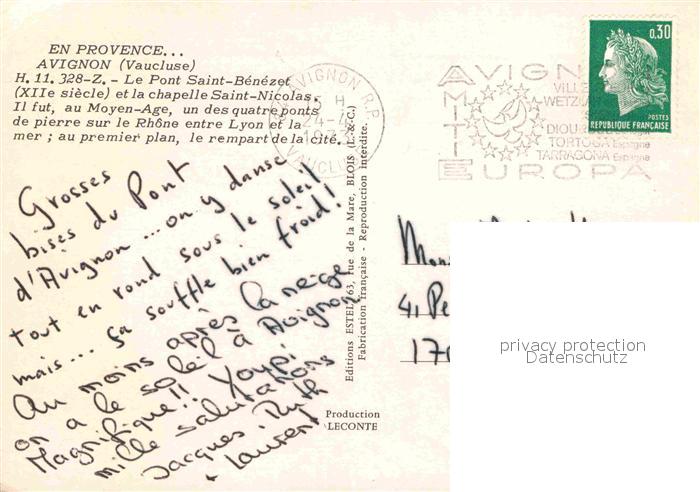 EN PROVENCE...
AVIGNON (Vaucluse)
H. 11. 328-Z. - Le Pont Saint-Bénézet
(XIIe siècle) et la chapelle Saint-Nicolas.
Il fut, au Moyen-Age, un des quatre ponts
de pierre sur le Rhône entre Lyon et la
mer ; au premier plan, le rempart de la cité.
Grosses
bises du Pont
d'Avignon ... on y danse
tout en rond sous le soleil
mais ... ça souffle bien froid !
Au moins après la neige
on a le soleil à Avignon
Magnifique !! Youpi
mille salutations
Jacques, Ruth
+ Laurent
Editions ESTEL, 63, rue de la Mare, BLOIS (L.-&-C.)
Fabrication française - Reproduction interdite.
Production
LECONTE
AVIGNON R.P.
VAUCLUSE
AVIGN
AMITIE
VILLE
WETZLAR
TORTOSA Espagne
TARRAGONA Espagne
EUROPA
0,30
POSTES
REPUBLIQUE FRANÇAISE
4, Pe
170
privacy protection
Datenschutz